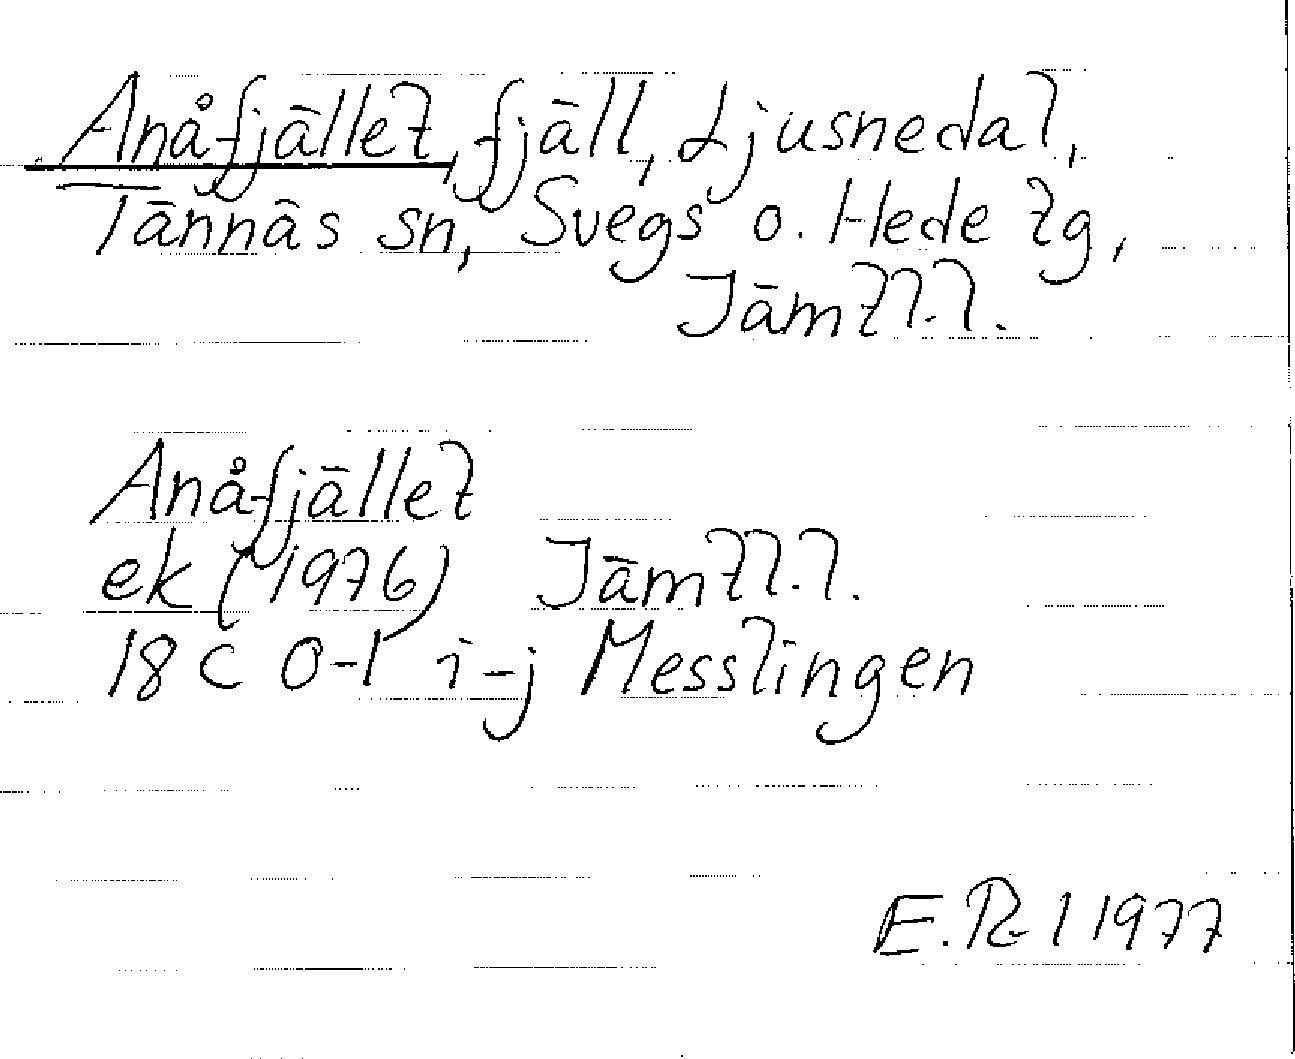 Anåfjället, fjäll, Ljusnedal,
Tännäs sn, Svegs o. Hede tg,
Jämtl.l.
Anåfjället
ek (1976) Jämtl.l.
18C 0-1 i-j Messlingen
E.R. 1 1977